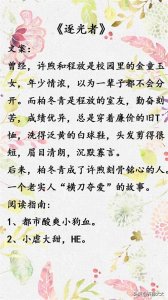 《逐光者》
文案：
曾经，许煦和程放是校园里的金童玉
女，年少情浓，以为一辈子都不会分
开。而柏冬青是程放的室友，勤奋刻
苦，成绩优异，总是穿着廉价的旧T
恤，洗得泛黄的白球鞋，头发剪得很
短，眉目清朗，沉默寡言。
后来，柏冬青成了许煦刻骨铭心的人。
一个老实人“横刀夺爱”的故事。
阅读指南：
1、都市酸爽小狗血。
2、小虐大甜，HE。